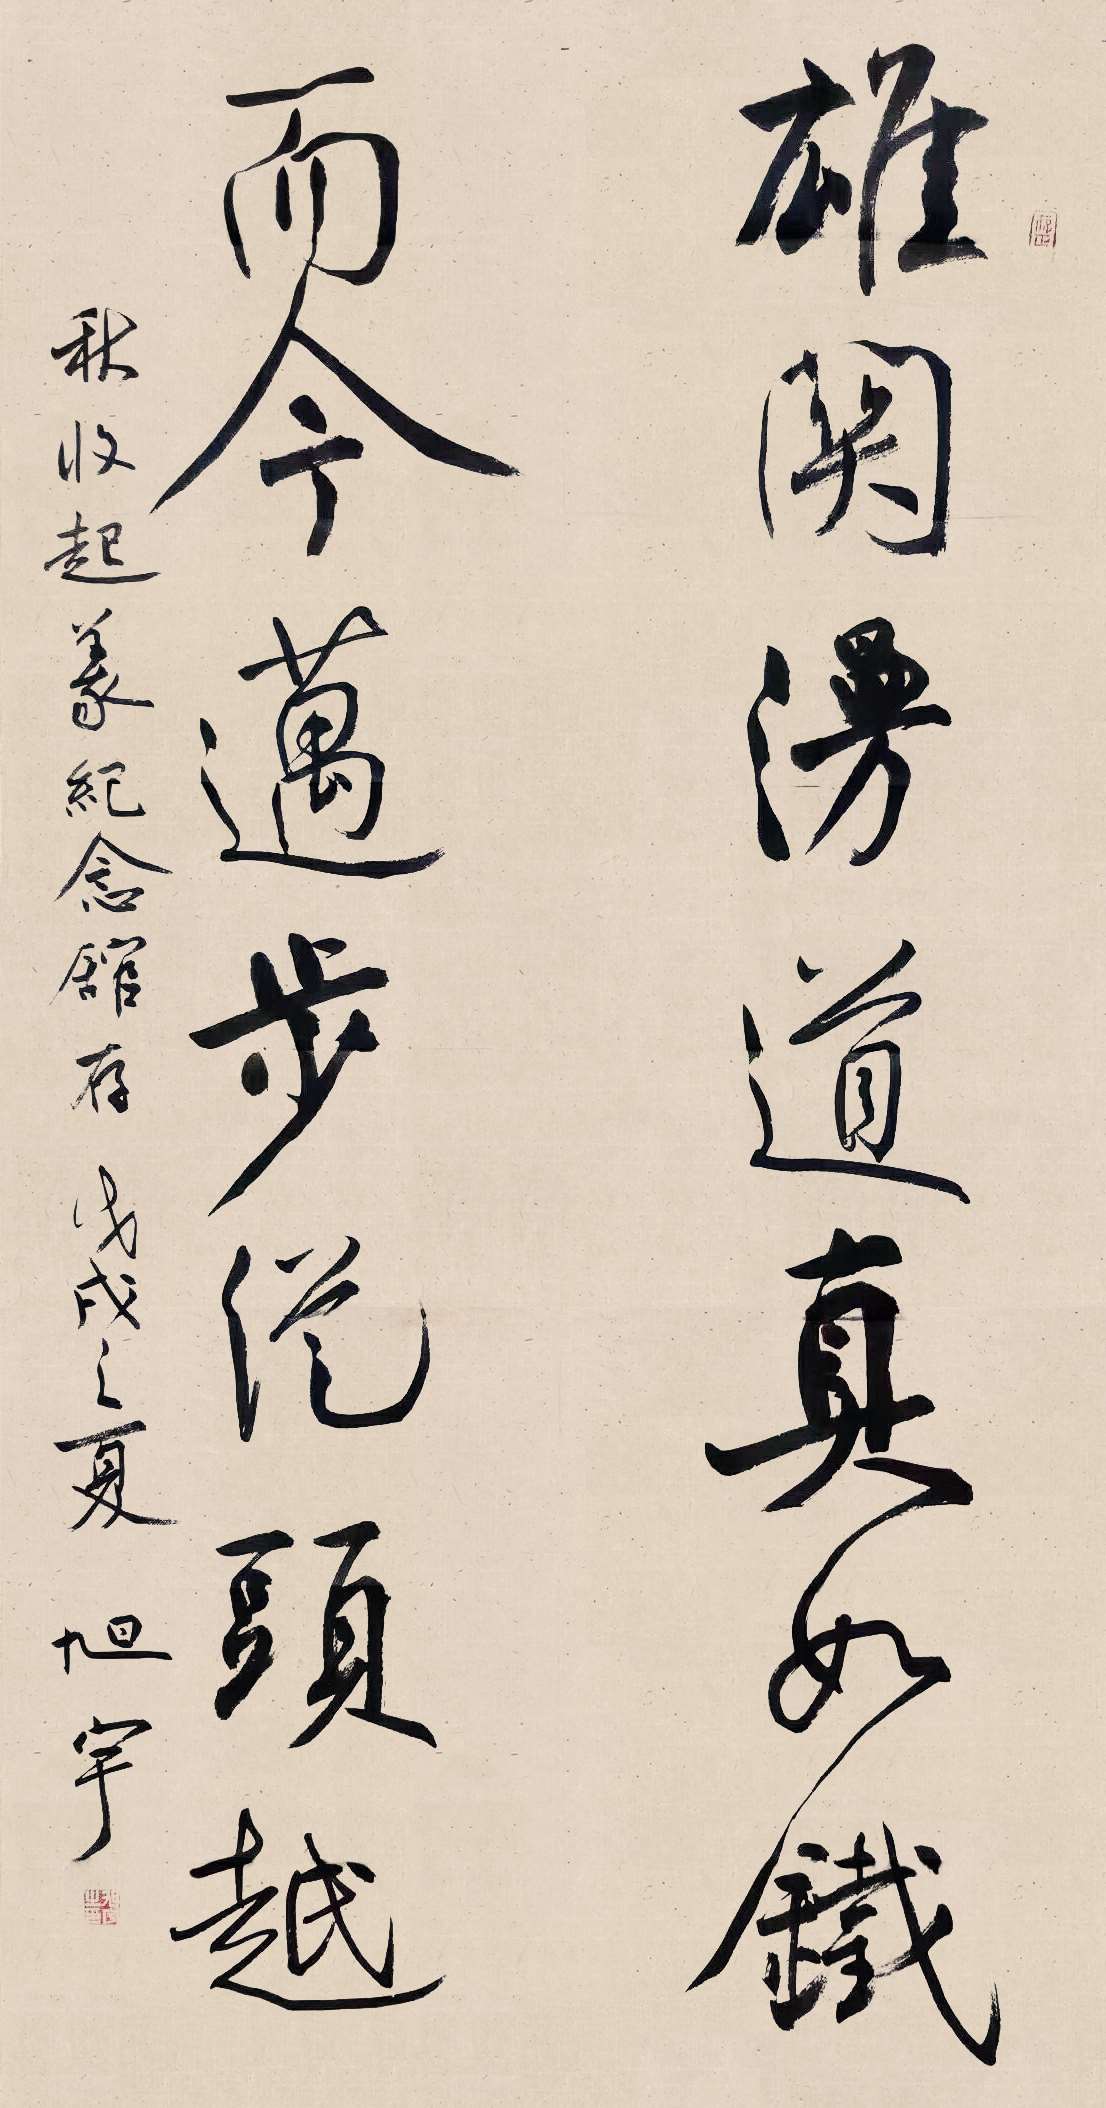 雄関漫道真如鐵
而今邁步従頭越
秋收起義紀念館存 戊戌之夏 旭宇